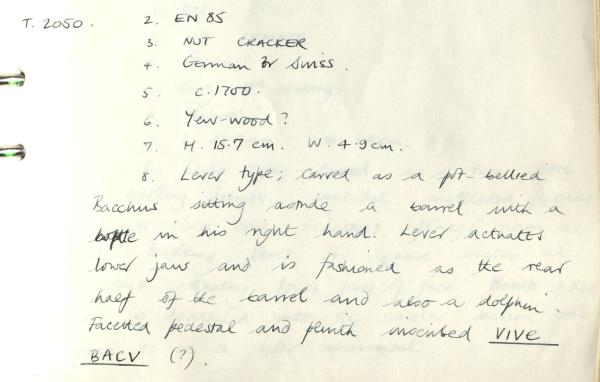 T. 2050. 2. EN 85
3. NUT CRACKER
4. German or Swiss.
5. c.1700.
6. Yew-wood?
7. H. 15.7 cm. W. 4.9 cm.
8. Lever type; carved as a pot-bellied
Bacchus sitting astride a barrel with a
bottle in his right hand. Lever actuates
lower jaw and is fashioned as the rear
half of the barrel and also a dolphin.
Facetted pedestal and plinth inscribed VIVE
BACV (?).